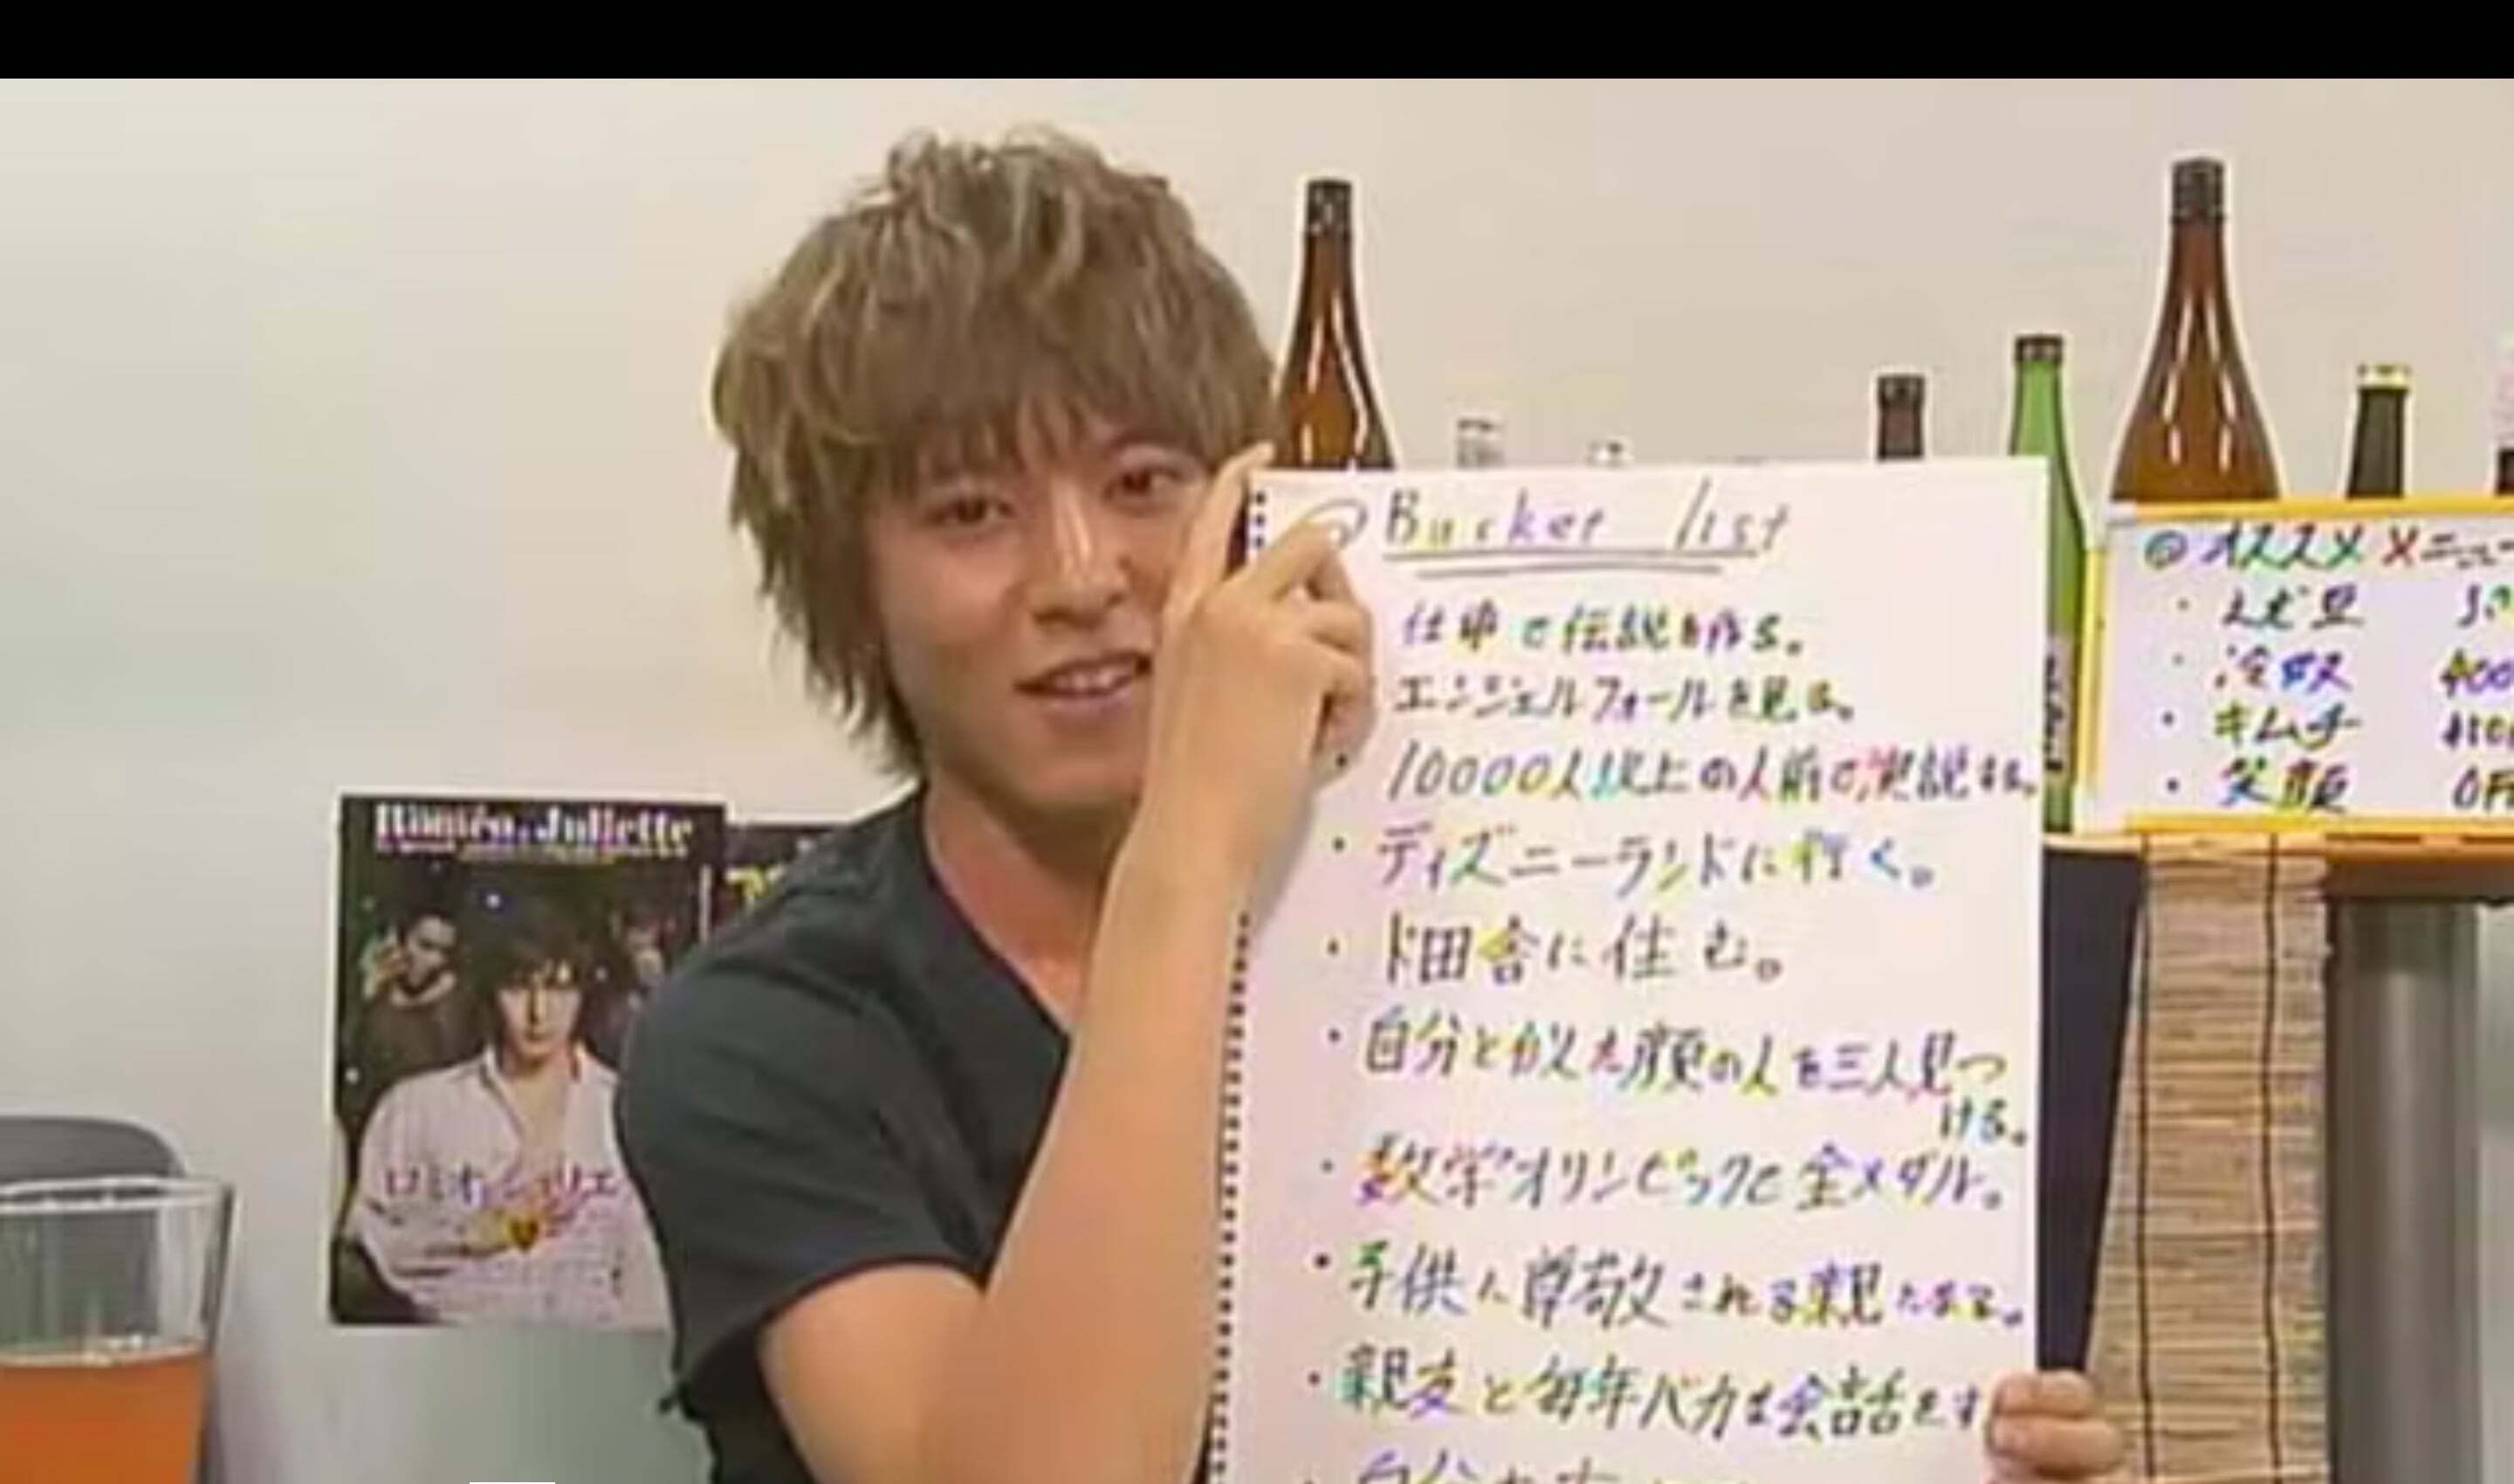 Bucket list
仕事で伝説を作る。
エンジェルフォールを見る。
・10000人以上の人前で演説する。
・ディズニーランドに行く。
・ド田舎に住む。
・自分と似た顔の人を三人見つ
ける。
・数学オリンピックで金メダル。
・子供に尊敬される親になる。
・親友と毎年バカな会話をす
◎オススメメニュー
・えだ豆
・冷奴 400
・キムチ
・笑顔
Roméo & Juliette
ロミオ&ジュリエ